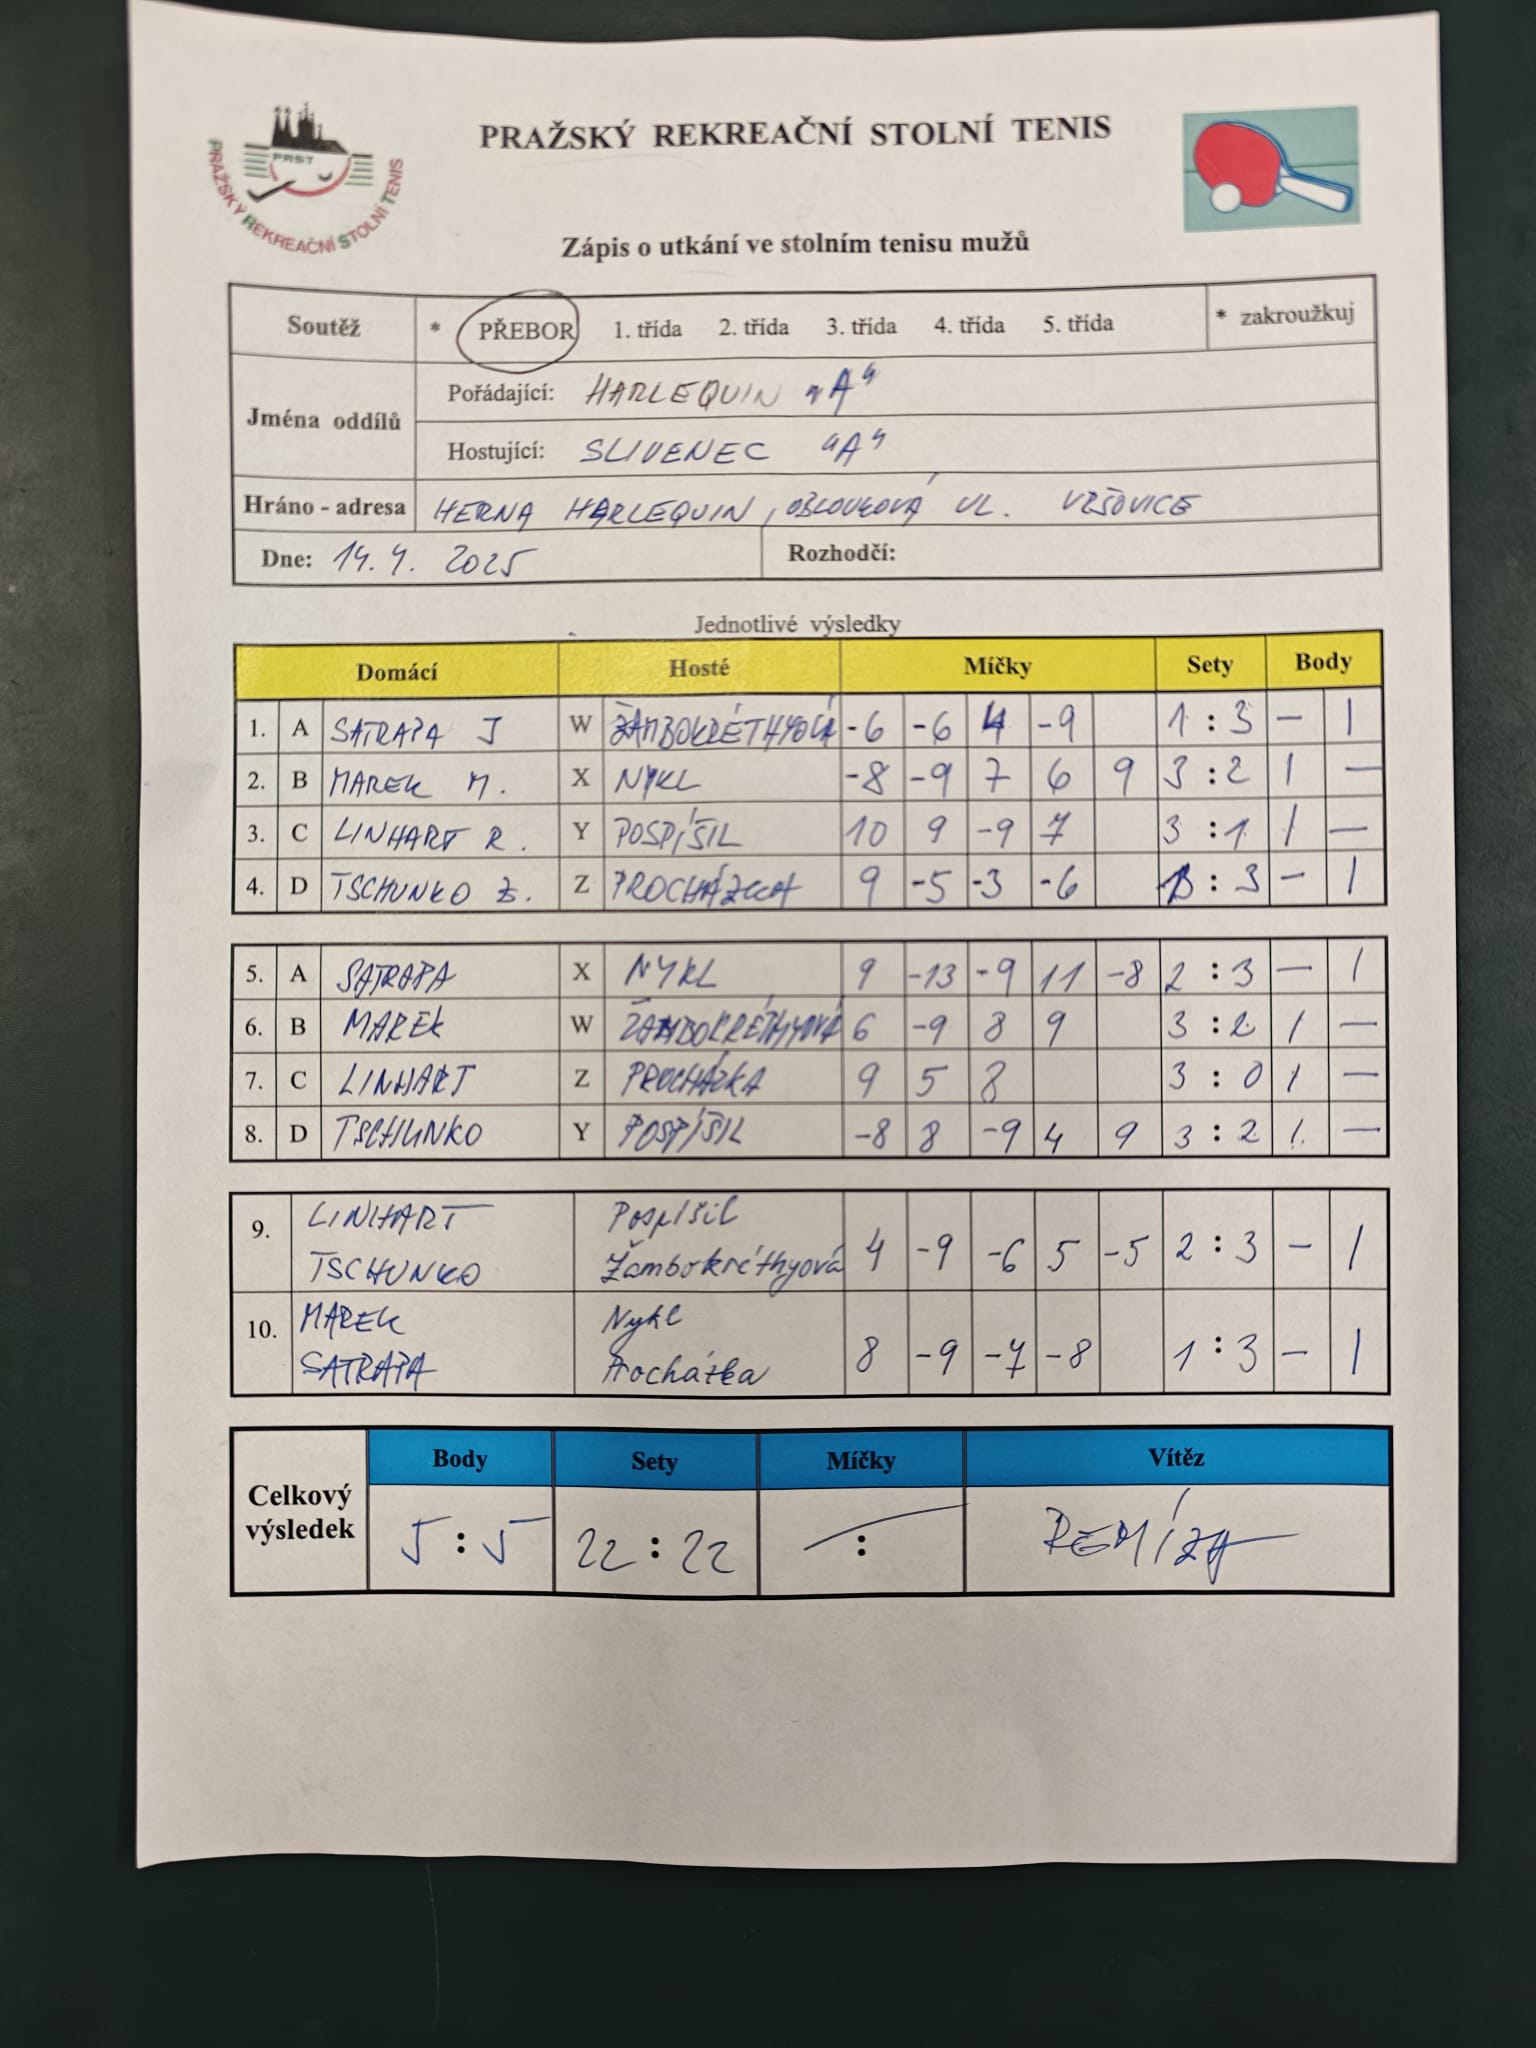 PRST
PRAŽSKÝ REKREAČNÍ STOLNÍ TENIS
PRAŽSKÝ REKREAČNÍ STOLNÍ TENIS
Zápis o utkání ve stolním tenisu mužů
Soutěž * PŘEBOR 1. třída 2. třída 3. třída 4. třída 5. třída * zakroužkuj
Jména oddílů
Pořádající: HARLEQUIN "A"
Hostující: SLIVENEC "A"
Hráno - adresa HERNA HARLEQUIN, OBLOUKOVÁ UL. VRŠOVICE
Dne: 14. 4. 2025 Rozhodčí:
Jednotlivé výsledky
Domácí Hosté Míčky Sety Body
1. A SATRAPA J W ŽAMBOKRÉTHYOVÁ -6 -6 4 -9 1 : 3 — 1
2. B MAREK M. X NYKL -8 -9 7 6 9 3 : 2 1 —
3. C LINHART R. Y POSPÍŠIL 10 9 -9 7 3 : 1 1 —
4. D TSCHUNKO Z. Z PROCHÁZKA 9 -5 -3 -6 1 : 3 — 1
5. A SATRAPA X NYKL 9 -13 -9 11 -8 2 : 3 — 1
6. B MAREK W ŽAMBOKRÉTHYOVÁ 6 -9 8 9 3 : 2 1 —
7. C LINHART Z PROCHÁZKA 9 5 8 3 : 0 1 —
8. D TSCHUNKO Y POSPÍŠIL -8 8 -9 4 9 3 : 2 1 —
9. LINHART Pospíšil
TSCHUNKO Žambokréthyová 4 -9 -6 5 -5 2 : 3 — 1
10. MAREK Nykl
SATRAPA Procházka 8 -9 -7 -8 1 : 3 — 1
Celkový výsledek
Body Sety Míčky Vítěz
5 : 5 22 : 22 — : REMÍZA